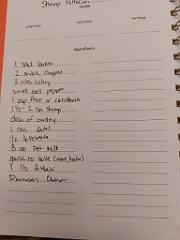 Shrimp Fettucini
recipe
prep time
cook time
servings
ingredients
1 stick butter
2 onions, chopped
2 ribs celery
small bell pepper
1 tsp flour or cornstarch
1½ - 2 lbs shrimp
dash of parsley
1 can Rotel
½ Velveeta
8 oz Pet Milk
garlic to taste
1 lb
Parmesan Cheese